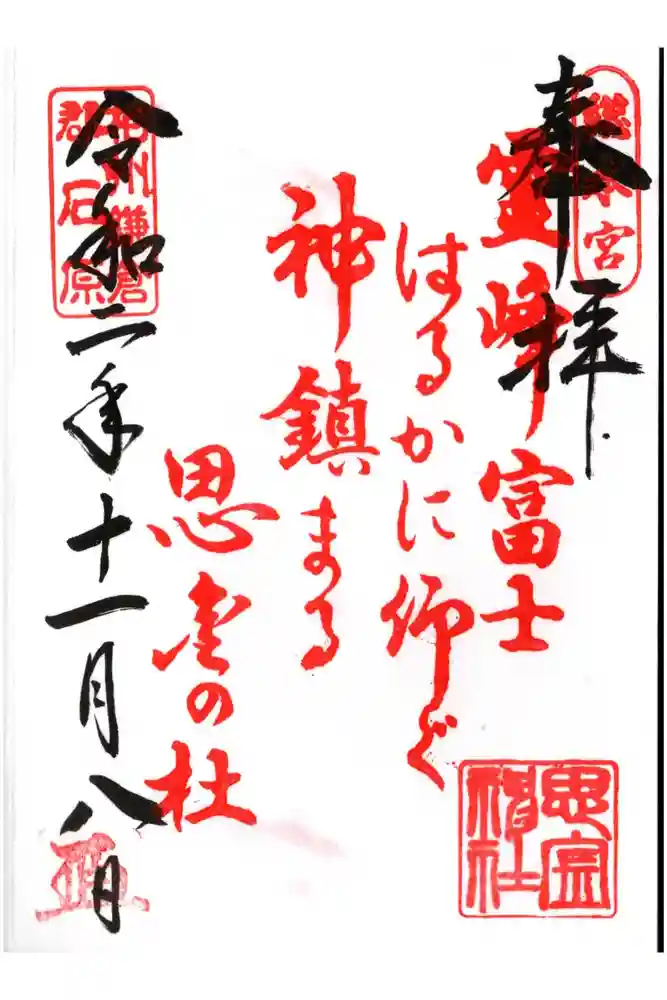 総本宮
奉拝
霊峰富士
はるかに仰ぐ
神鎮まる
思金の杜
思金
神社
相州鎌倉
郡石原
令和二年十一月八日